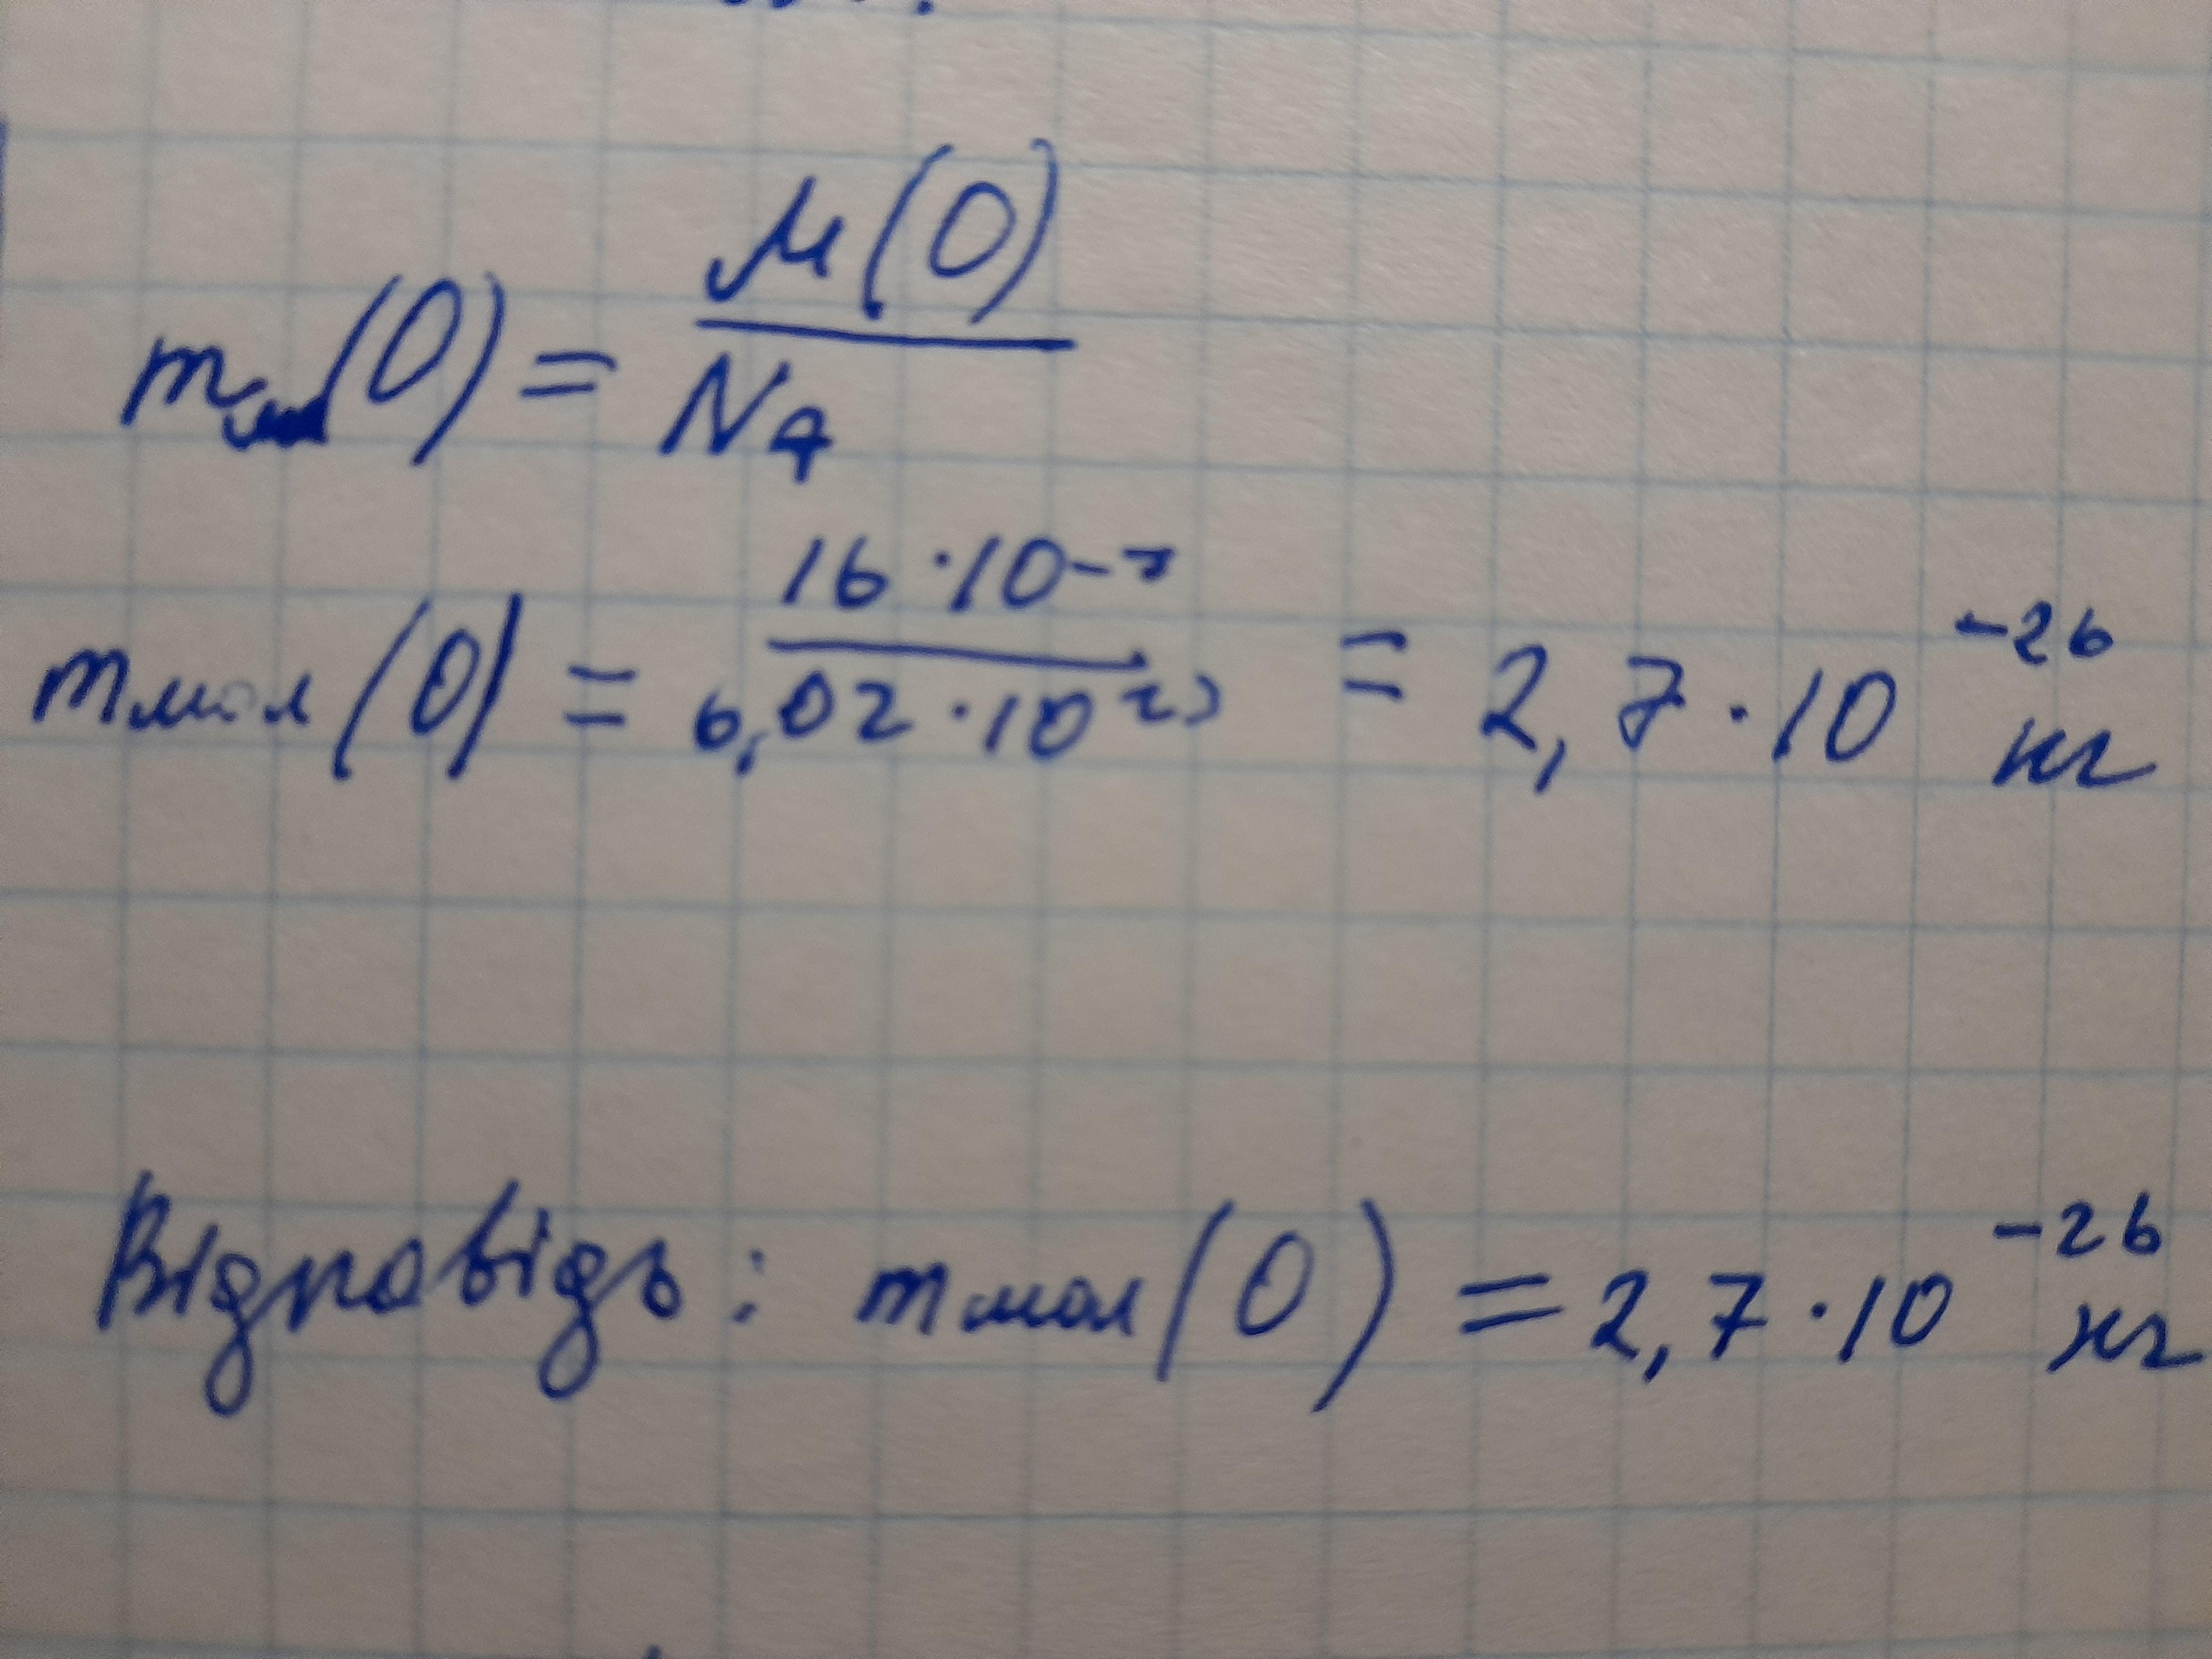 m (O) = μ(O) / N_A
m мол (O) = 16 · 10^-3 / 6,02 · 10^23 = 2,7 · 10^-26 кг
Відповідь : m мол (O) = 2,7 · 10^-26 кг